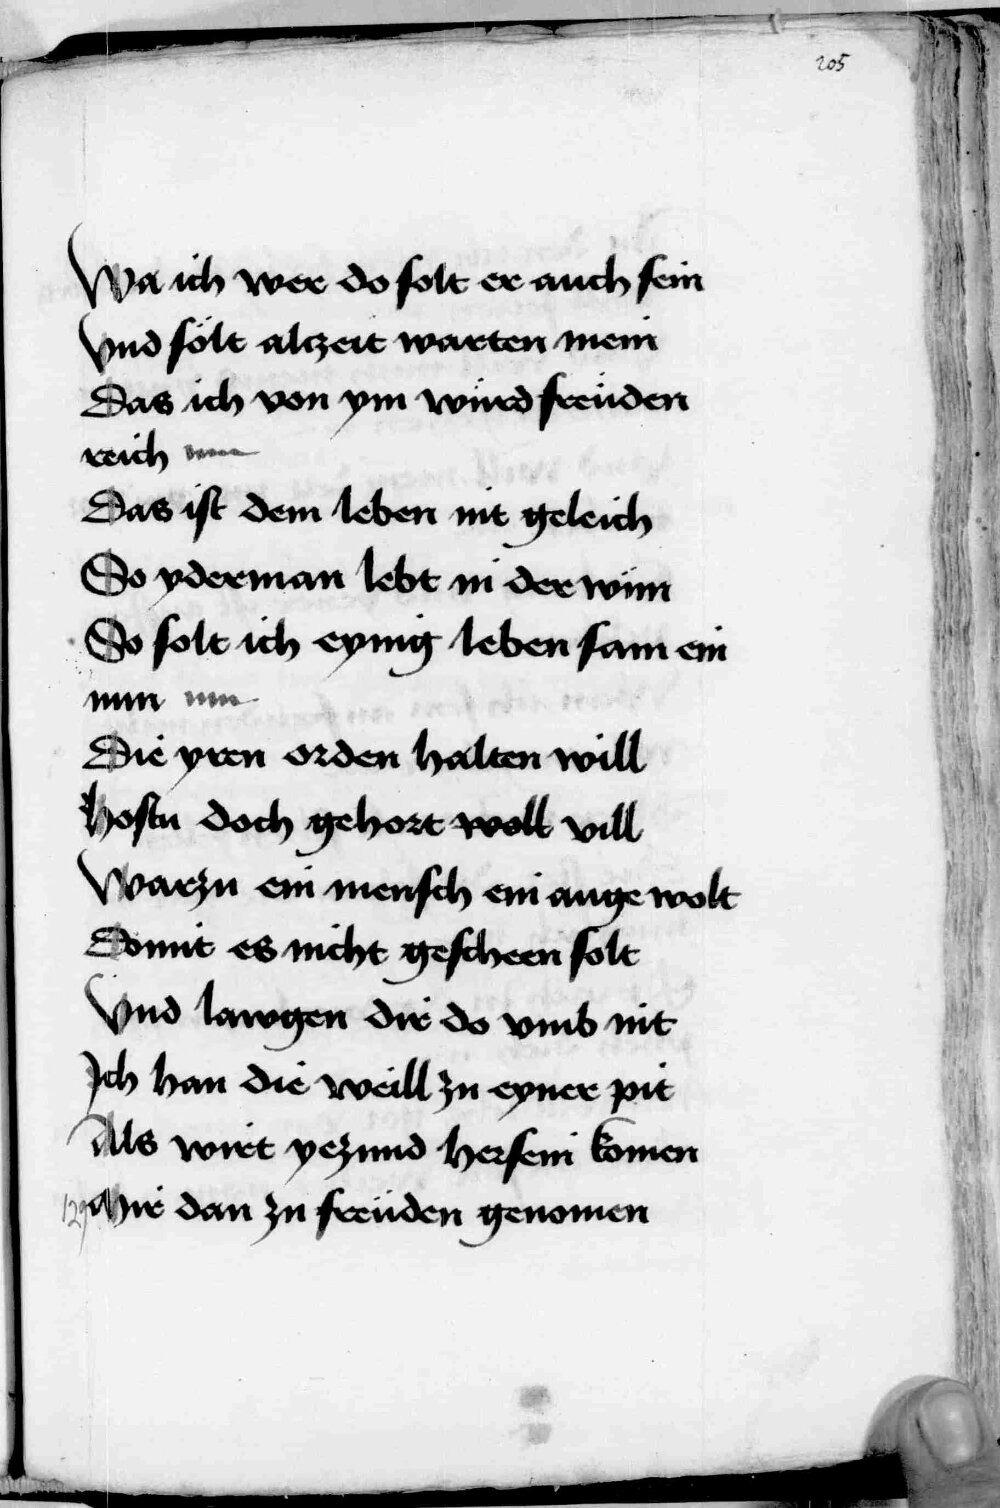 205
Wa ich wer do solt er auch sein
Vnd sölt alczeit warten mein
Das ich von ym würd freüden
reich
Das ist dem leben nit geleich
So yderman lebt in der win
So solt ich eynig leben sam ein
nun
Die yren orden halten will
Hostu doch gehort woll vill
Warzu ein mensch ein auge wolt
Domit es nicht gescheen solt
Vnd lawgen dir do vmb nit
Ich han die weill zu eyner pit
Als wirt yezund her sein komen
129 Mir dan zu freüden genomen